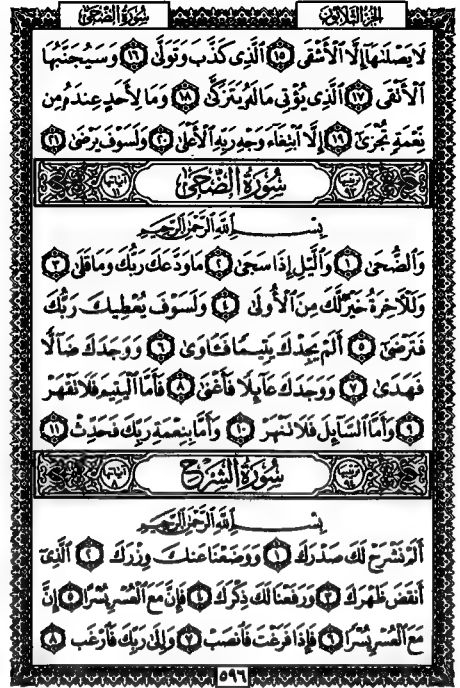 الجزء الثلاثون
سُورَةُ الضُّحَىٰ
لَا يَصْلَىٰهَآ إِلَّا ٱلْأَشْقَى ١٥ ٱلَّذِى كَذَّبَ وَتَوَلَّىٰ ١٦ وَسَيُجَنَّبُهَا
ٱلْأَتْقَى ١٧ ٱلَّذِى يُؤْتِى مَالَهُۥ يَتَزَكَّىٰ ١٨ وَمَا لِأَحَدٍ عِندَهُۥ مِن
نِّعْمَةٍ تُجْزَىٰٓ ١٩ إِلَّا ٱبْتِغَآءَ وَجْهِ رَبِّهِ ٱلْأَعْلَىٰ ٢٠ وَلَسَوْفَ يَرْضَىٰ ٢١
ترتيبها ٩٣ سُورَةُ الضُّحَىٰ آياتها ١١
بِسْمِ ٱللَّهِ ٱلرَّحْمَٰنِ ٱلرَّحِيمِ
وَٱلضُّحَىٰ ١ وَٱلَّيْلِ إِذَا سَجَىٰ ٢ مَا وَدَّعَكَ رَبُّكَ وَمَا قَلَىٰ ٣
وَلَلْـَٔاخِرَةُ خَيْرٌ لَّكَ مِنَ ٱلْأُولَىٰ ٤ وَلَسَوْفَ يُعْطِيكَ رَبُّكَ
فَتَرْضَىٰٓ ٥ أَلَمْ يَجِدْكَ يَتِيمًا فَـَٔاوَىٰ ٦ وَوَجَدَكَ ضَآلًّا
فَهَدَىٰ ٧ وَوَجَدَكَ عَآئِلًا فَأَغْنَىٰ ٨ فَأَمَّا ٱلْيَتِيمَ فَلَا تَقْهَرْ
٩ وَأَمَّا ٱلسَّآئِلَ فَلَا تَنْهَرْ ١٠ وَأَمَّا بِنِعْمَةِ رَبِّكَ فَحَدِّثْ ١١
ترتيبها ٩٤ سُورَةُ الشَّرْحِ آياتها ٨
بِسْمِ ٱللَّهِ ٱلرَّحْمَٰنِ ٱلرَّحِيمِ
أَلَمْ نَشْرَحْ لَكَ صَدْرَكَ ١ وَوَضَعْنَا عَنكَ وِزْرَكَ ٢ ٱلَّذِىٓ
أَنقَضَ ظَهْرَكَ ٣ وَرَفَعْنَا لَكَ ذِكْرَكَ ٤ فَإِنَّ مَعَ ٱلْعُسْرِ يُسْرًا ٥ إِنَّ
مَعَ ٱلْعُسْرِ يُسْرًا ٦ فَإِذَا فَرَغْتَ فَٱنصَبْ ٧ وَإِلَىٰ رَبِّكَ فَٱرْغَب ٨
٥٩٦